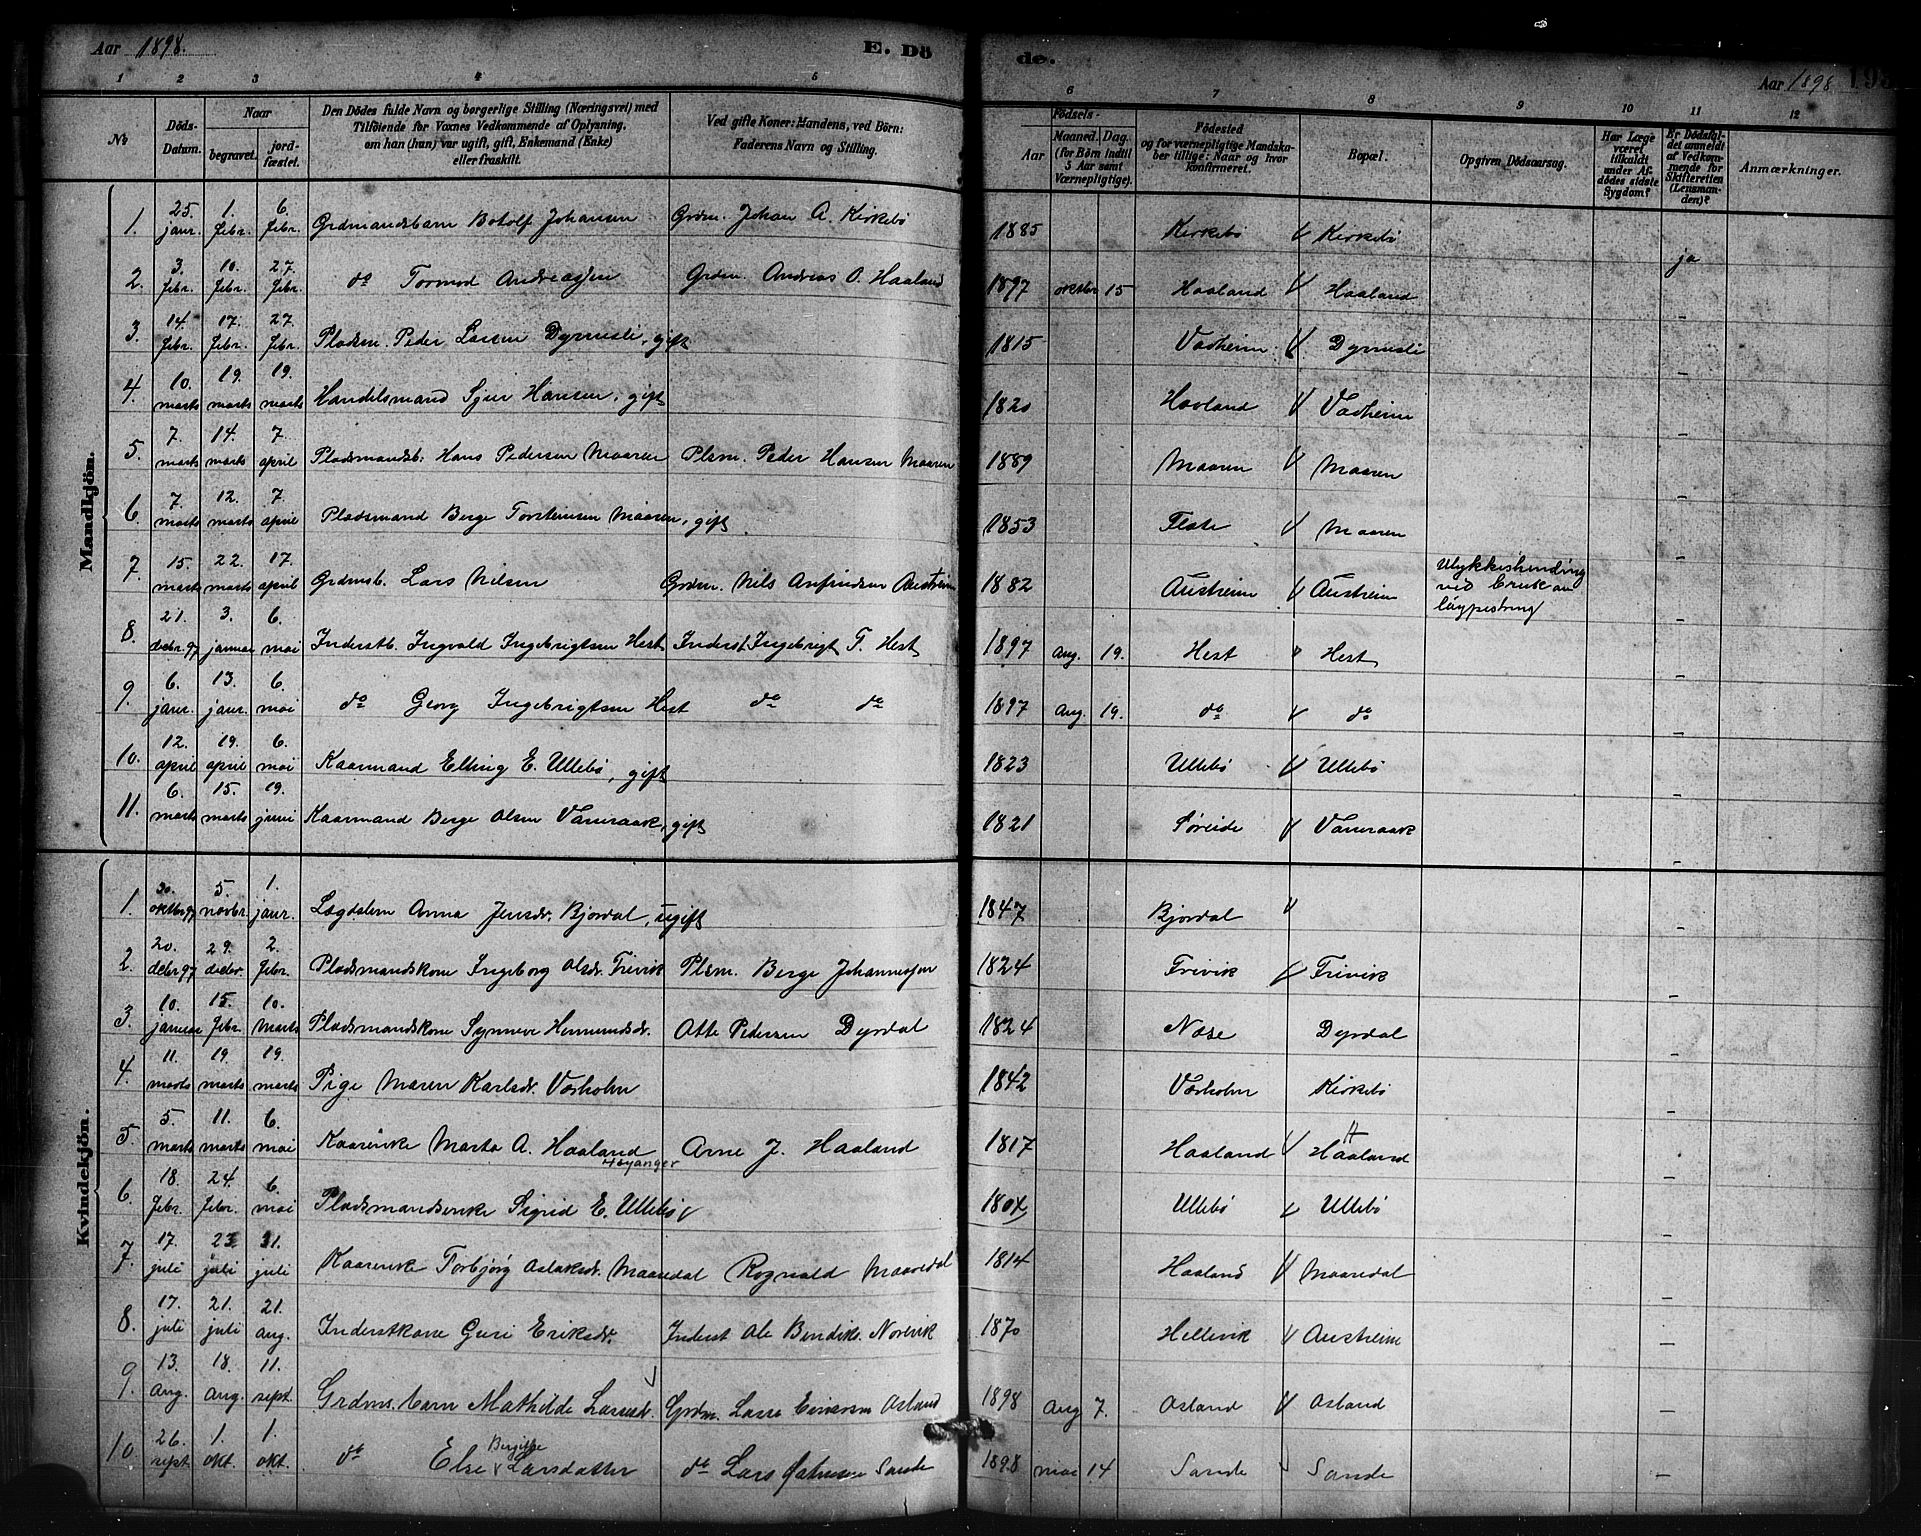 Aar 1898. E. Dö de. Aar 1898
1 2 3 4 5 6 7 8 9 10 11 12
№ Döds-Datum. Naar begravet. jordfæstet. Den Dödes fulde Navn og borgerlige Stilling (Næringsvei) med Tilföiende for Voxnes Vedkommende af Oplysning, om han (hun) var ugift, gift, Enkemand (Enke) eller fraskilt. Ved gifte Koner: Mandens, ved Börn: Faderens Navn og Stilling. Födsels- Aar Maaned. Dag. (for Börn indtil 5 Aar samt Værnepligtige). Födested og for værnepligtige Mandskaber tillige: Naar og hvor konfirmeret. Bopæl. Opgiven Dödsaarsag. Har Læge været tilkaldt under Afdödes sidste Sygdom? Er Dödsfaldet anmeldt af Vedkommende for Skifteretten (Lensmanden)? Anmærkninger.
Mandkjön.
1. 25. janr. 1. febr. 6. febr. Grdmandsbarn Botolf Johansen Grdm. Johan A. Kirkebö 1885 Kirkebö Kirkebö ja
2. 3. febr. 10. febr. 27. febr. do Tormod Andreassen Grdm. Andreas O. Haaland 1897 oktbr 15 Haaland Haaland –
3. 14. febr. 17. febr. 27. febr. Pladsm. Peder Larsen Dyrneslі, gift 1815 Vadheim Dyrnesli –
4. 10. marts 19. marts 19. marts Handelsmand Sjur Hansen, gift 1820 Haaland Vadheim –
5. 7. marts 14. marts 7. april Pladsmandsb. Hans Pedersen Maaren Plsm. Peder Hansen Maaren 1889 Maaren Maaren –
6. 7. marts 12. marts 7. april Pladsmand Berge Torsteinsen Maaren, gift 1853 Flate Maaren –
7. 15. marts 22. marts 17. april Grdmsb. Lars Nilsen Grdm. Nils Anfindsen Austreim 1882 Austreim Austreim Ulykkeshending ved bruk av löypestreng –
8. 21. debr. 97 3. januar 6. mai Inderstb. Ingvald Ingebrigtsen Hest Inderst Ingebrigt T. Hest 1897 Aug. 19. Hest " Hest –
9. 6. janr. 13. janr. 6. mai do Georg Ingebrigtsen Hest do do 1897 Aug. 19. do do –
10. 12. april 19. april 6. mai Kaarmand Elling E. Ullebö, gift 1823 Ullebö Ullebö –
11. 6. marts 15. marts 19. juni Kaarmand Berge Olsen Vaneraak, gift 1821 Söreide Vaneraak –
Kvindekjön.
1. 30. oktbr 97 5 novbr. 1. janr. Lægdslem Anna Jensdr. Bjordal, ugift 1847 Bjordal –
2. 20. debr 97 29. debr. 2. febr. Pladsmandskone Ingeborg Olsdr. Trivik Plsm. Berge Johannessen 1824 Trivik Trivik –
3. 10. januar 15. febr. 10. marts Pladsmandskone Synneve Hermundsdr. Otte Pedersen Dyrdal 1824 Nese Dyrdal –
4. 11. marts 19. marts 19. marts Pige Maren Karlsdr. Værholm 1842 Værholm Kirkebö –
5. 5. marts 11. marts 6. mai Kaarenke Marta A. Haaland Arne J. Haaland 1817 Haaland Haaland –
Höyanger
6. 18. febr. 24. febr. 6. mai Pladsmandsenke Sigrid E. Ullebö 1804 Ullebö Ullebö –
7. 17. juli 23 juli 31. juli Kaarenke Torbjörg Aslaksdr. Maaredal Rognald Maaredal 1814 Haaland Maaredal –
8. 17. juli 21. juli 21. aug. Inderstkone Guri Eriksdr. Inderst Ole Bendiks. Norevik 1870 Hellevik Austreim –
9. 13. aug. 18. aug. 11. sept. Grdms. barn Mathilde Larsesdr. Grdm. Lasse Einarsen Osland 1898 Aug 7. Osland Osland –
10. 26. sept. 1. okt. 1. okt. do Else Bergitte Larsdatter do Lars Sande 1898 mai 14 Sande Sande –